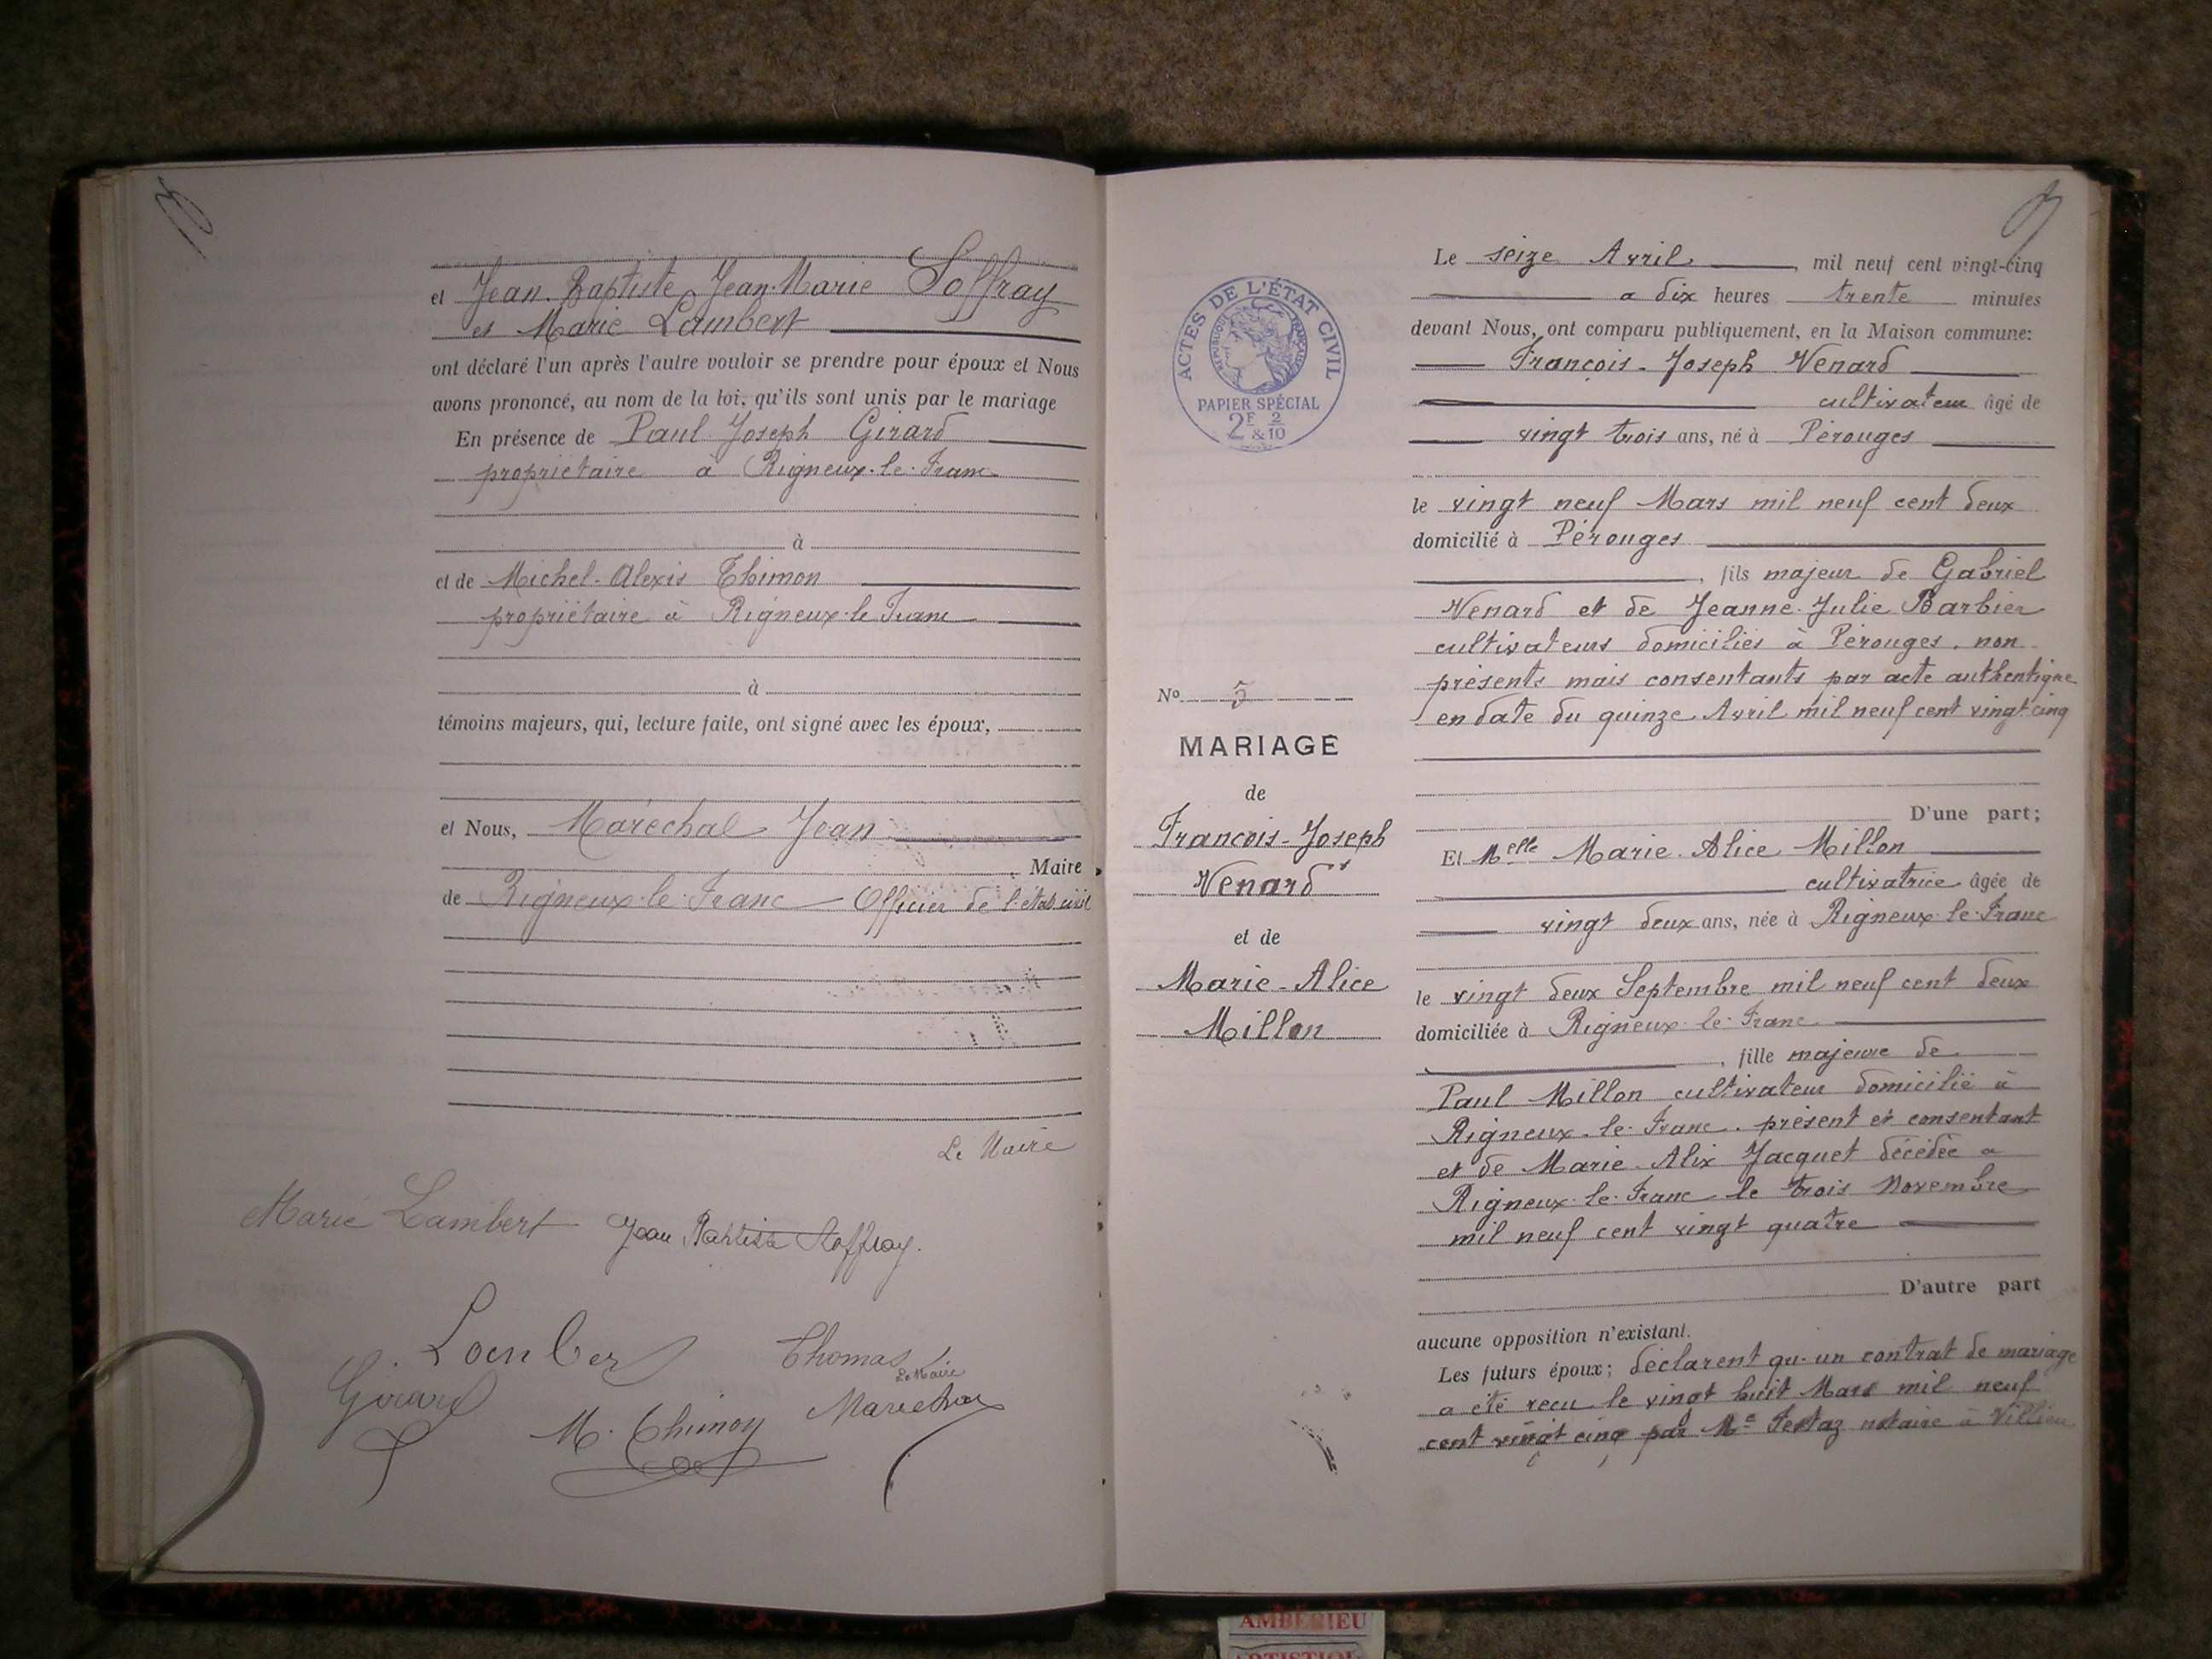 et Jean Baptiste Jean-Marie Soffray
et Marie Lambert
ont déclaré l'un après l'autre vouloir se prendre pour époux et Nous
avons prononcé, au nom de la loi, qu'ils sont unis par le mariage
En présence de Paul Joseph Girard
propriétaire à Rigneux-le-Franc
à
et de Michel-Alexis Thimon
propriétaire à Rigneux-le-Franc
à
témoins majeurs, qui, lecture faite, ont signé avec les époux,
et Nous, Maréchal Jean
, Maire
de Rigneux-le-Franc Officier de l'état civil
Le Maire
Marie Lambert Jean Baptiste Soffray.
Lambert Thomas
Le Maire
Girard M. Thimon Marechal
ACTES DE L'ÉTAT CIVIL
RÉPUBLIQUE FRANÇAISE
PAPIER SPÉCIAL
2F & 2/10
No 5
MARIAGE
de
François-Joseph
Venard
et de
Marie-Alice
Millon
Le seize Avril, mil neuf cent vingt-cinq
a dix heures trente minutes
devant Nous, ont comparu publiquement, en la Maison commune:
François-Joseph Venard
cultivateur âgé de
vingt trois ans, né à Pérouges
le vingt neuf Mars mil neuf cent deux
domicilié à Pérouges
, fils majeur de Gabriel
Venard et de Jeanne-Julie Barbier
cultivateurs domiciliés à Pérouges. non
présents mais consentants par acte authentique
en date du quinze Avril mil neuf cent vingt cinq
D'une part;
Et Melle Marie-Alice Millon
cultivatrice âgée de
vingt deux ans, née à Rigneux-le-Franc
le vingt deux Septembre mil neuf cent deux
domiciliée à Rigneux-le-Franc
, fille majeure de
Paul Millon cultivateur domicilié à
Rigneux-le-Franc. présent et consentant
et de Marie-Alix Jacquet décédée a
Rigneux-le-Franc le trois Novembre
mil neuf cent vingt quatre
D'autre part
aucune opposition n'existant.
Les futurs époux; déclarent qu'un contrat de mariage
a été reçu le vingt huit Mars mil neuf
cent vingt cinq par Me notaire à Villieu
AMBÉRIEU